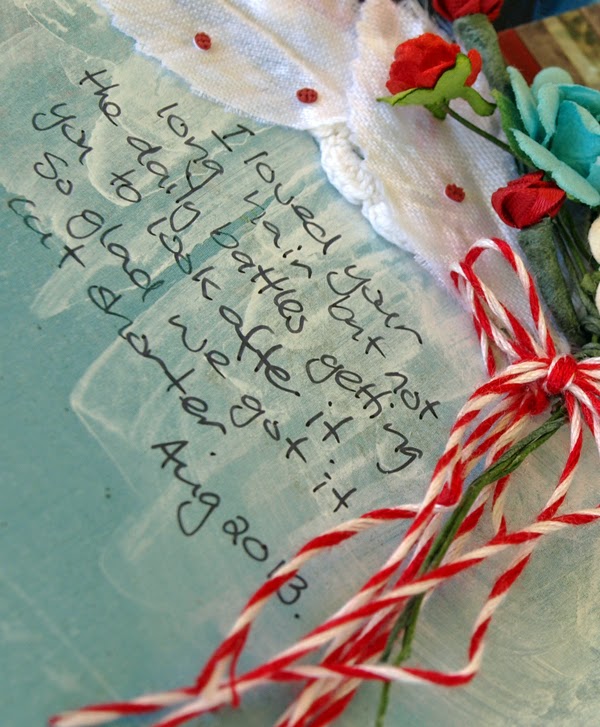 I loved your
long hair but not
the daily battles getting
you to look after it
so glad we got it
cut shorter.
Aug 2013.